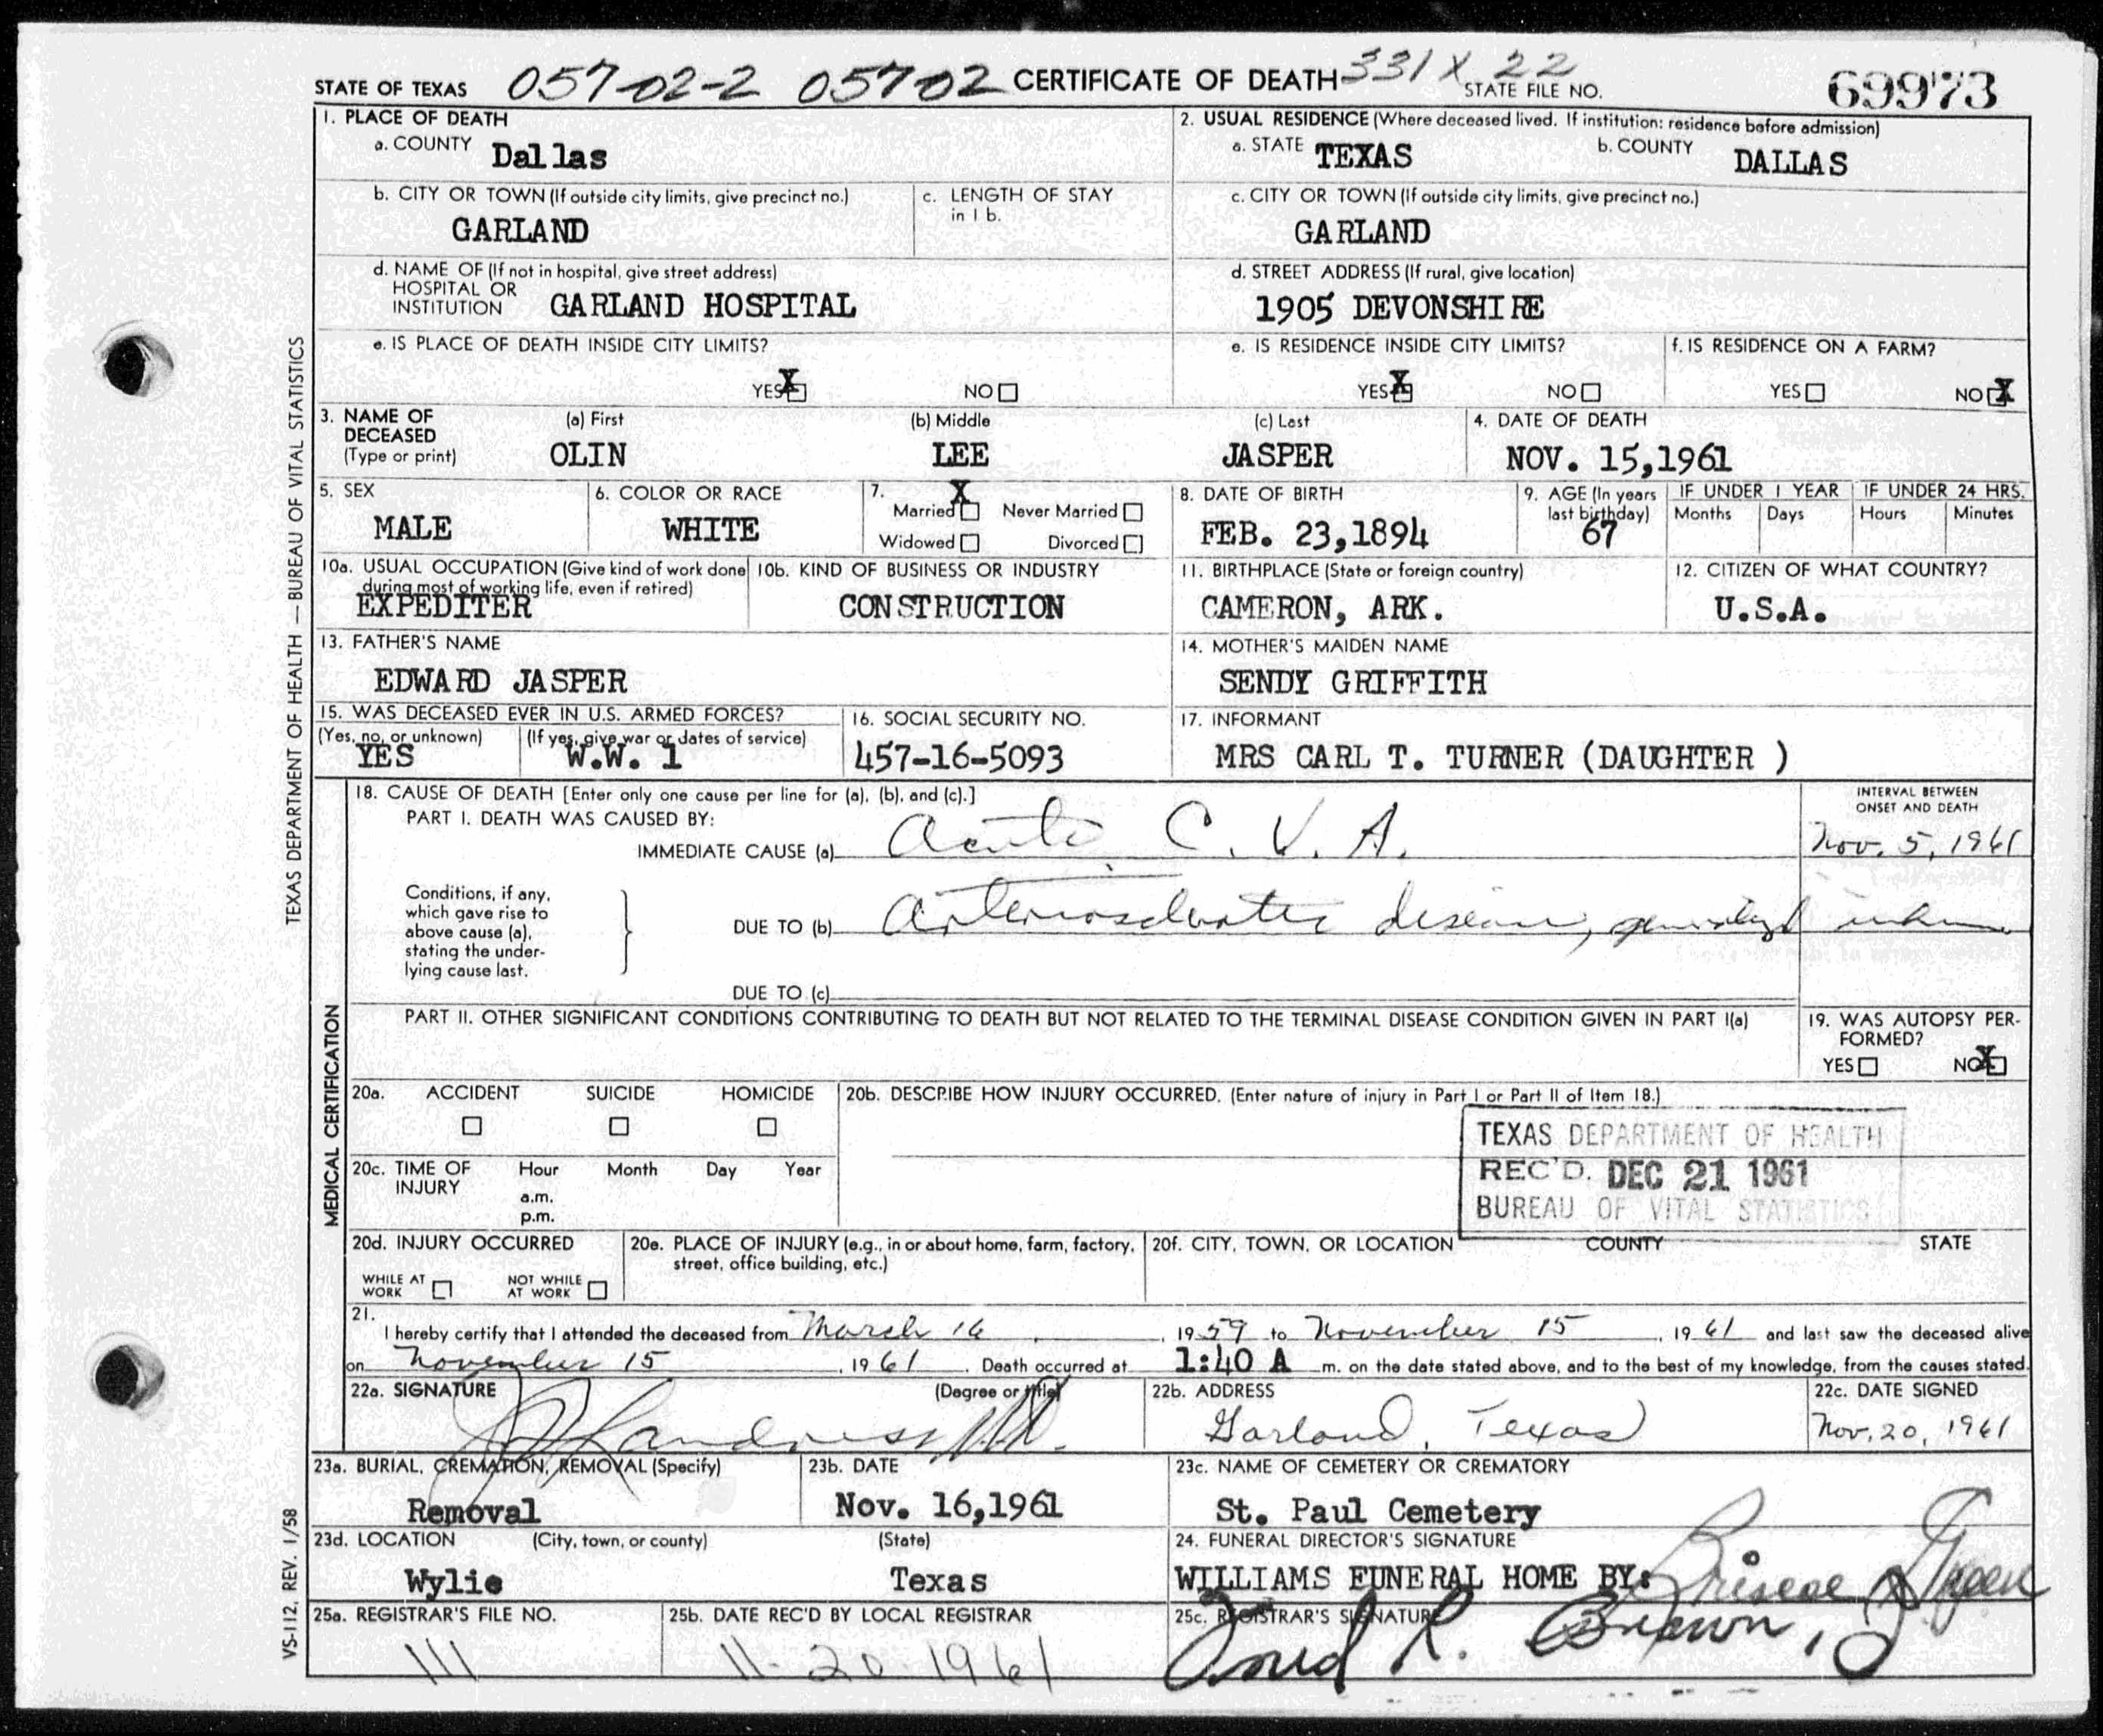 STATE OF TEXAS 057-02-2 05702 CERTIFICATE OF DEATH 331X 22 STATE FILE NO. 69973
1. PLACE OF DEATH
a. COUNTY Dallas
2. USUAL RESIDENCE (Where deceased lived. If institution: residence before admission)
a. STATE TEXAS b. COUNTY DALLAS
b. CITY OR TOWN (If outside city limits, give precinct no.) GARLAND
c. LENGTH OF STAY in 1 b.
c. CITY OR TOWN (If outside city limits, give precinct no.) GARLAND
d. NAME OF (If not in hospital, give street address)
HOSPITAL OR
INSTITUTION GARLAND HOSPITAL
d. STREET ADDRESS (If rural, give location)
1905 DEVONSHIRE
e. IS PLACE OF DEATH INSIDE CITY LIMITS?
YES X NO
e. IS RESIDENCE INSIDE CITY LIMITS?
YES X NO
f. IS RESIDENCE ON A FARM?
YES NO X
3. NAME OF DECEASED (Type or print)
(a) First (b) Middle (c) Last
OLIN LEE JASPER
4. DATE OF DEATH
NOV. 15,1961
5. SEX
MALE
6. COLOR OR RACE
WHITE
7. X
Married Never Married
Widowed Divorced
8. DATE OF BIRTH
FEB. 23,1894
9. AGE (In years last birthday)
67
IF UNDER 1 YEAR
Months Days
IF UNDER 24 HRS.
Hours Minutes
10a. USUAL OCCUPATION (Give kind of work done during most of working life, even if retired)
EXPEDITER
10b. KIND OF BUSINESS OR INDUSTRY
CONSTRUCTION
11. BIRTHPLACE (State or foreign country)
CAMERON, ARK.
12. CITIZEN OF WHAT COUNTRY?
U.S.A.
13. FATHER'S NAME
EDWARD JASPER
14. MOTHER'S MAIDEN NAME
SENDY GRIFFITH
15. WAS DECEASED EVER IN U.S. ARMED FORCES?
(Yes, no, or unknown) (If yes, give war or dates of service)
YES W.W. 1
16. SOCIAL SECURITY NO.
457-16-5093
17. INFORMANT
MRS CARL T. TURNER (DAUGHTER )
18. CAUSE OF DEATH [Enter only one cause per line for (a), (b), and (c).]
PART I. DEATH WAS CAUSED BY:
IMMEDIATE CAUSE (a) Acute C. V. A.
INTERVAL BETWEEN ONSET AND DEATH
Nov. 5, 1961
Conditions, if any,
which gave rise to
above cause (a),
stating the under-
lying cause last.
DUE TO (b) Arteriosclerotic disease, generalized
DUE TO (c)
PART II. OTHER SIGNIFICANT CONDITIONS CONTRIBUTING TO DEATH BUT NOT RELATED TO THE TERMINAL DISEASE CONDITION GIVEN IN PART I(a)
19. WAS AUTOPSY PER-
FORMED?
YES NO X
20a. ACCIDENT SUICIDE HOMICIDE
20b. DESCRIBE HOW INJURY OCCURRED. (Enter nature of injury in Part I or Part II of Item 18.)
TEXAS DEPARTMENT OF HEALTH
REC'D. DEC 21 1961
BUREAU OF VITAL STATISTICS
20c. TIME OF INJURY Hour Month Day Year
a.m.
p.m.
20d. INJURY OCCURRED
WHILE AT WORK NOT WHILE AT WORK
20e. PLACE OF INJURY (e.g., in or about home, farm, factory, street, office building, etc.)
20f. CITY, TOWN, OR LOCATION COUNTY STATE
21.
I hereby certify that I attended the deceased from March 16, 1959 to November 15, 1961 and last saw the deceased alive
on November 15, 1961. Death occurred at 1:40 A m. on the date stated above, and to the best of my knowledge, from the causes stated.
22a. SIGNATURE (Degree or title)
22b. ADDRESS
Garland, Texas
22c. DATE SIGNED
Nov. 20, 1961
23a. BURIAL, CREMATION, REMOVAL (Specify)
Removal
23b. DATE
Nov. 16,1961
23c. NAME OF CEMETERY OR CREMATORY
St. Paul Cemetery
23d. LOCATION (City, town, or county) (State)
Wylie Texas
24. FUNERAL DIRECTOR'S SIGNATURE
WILLIAMS FUNERAL HOME BY: Briscoe
25a. REGISTRAR'S FILE NO.
111
25b. DATE REC'D BY LOCAL REGISTRAR
11-20-1961
25c. REGISTRAR'S SIGNATURE
R. Brown, Jr
TEXAS DEPARTMENT OF HEALTH — BUREAU OF VITAL STATISTICS
MEDICAL CERTIFICATION
VS-112, REV. 1/58